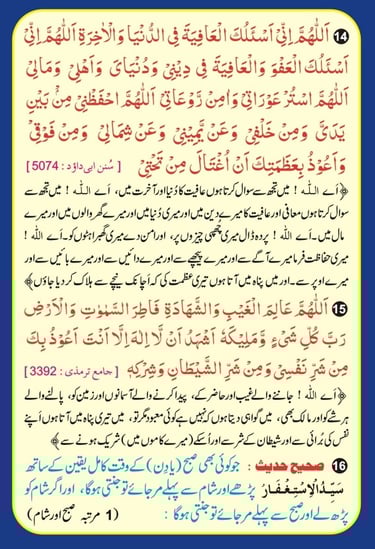 14 اَللّٰهُمَّ اِنِّیْ اَسْئَلُكَ الْعَافِیَةَ فِی الدُّنْیَا وَالْاٰخِرَةِ اَللّٰهُمَّ اِنِّیْ
اَسْئَلُكَ الْعَفْوَ وَالْعَافِیَةَ فِیْ دِیْنِیْ وَدُنْیَایَ وَاَهْلِیْ وَمَالِیْ
اَللّٰهُمَّ اسْتُرْ عَوْرَاتِیْ وَاٰمِنْ رَّوْعَاتِیْ اَللّٰهُمَّ احْفَظْنِیْ مِنْۢ بَیْنِ
یَدَیَّ وَمِنْ خَلْفِیْ وَعَنْ یَّمِیْنِیْ وَعَنْ شِمَالِیْ وَمِنْ فَوْقِیْ
وَاَعُوْذُ بِعَظَمَتِكَ اَنْ اُغْتَالَ مِنْ تَحْتِیْ [ سُنن ابی داؤد : 5074 ]
﴿ اَے اللہ ! میں تجھ سے سوال کرتا ہوں عافیت کا دُنیا اور آخرت میں، اَے اللہ ! میں تجھ سے
سوال کرتا ہوں معافی اور عافیت کا میرے دین میں اور میری دُنیا میں اور میرے گھر والوں میں اور میرے
مال میں۔ اَے اللہ ! پردہ ڈال میری چُھپی چیزوں پر، اور امن دے میری گھبراہٹوں کو۔ اَے اللہ !
میری حفاظت فرما میرے آگے سے اور میرے پیچھے سے اور میرے دائیں سے اور میرے بائیں سے اور
میرے اوپر سے۔ اور میں پناہ میں آتا ہوں تیری عظمت کی کہ اَچانک نیچے سے ہلاک کر دیا جاؤں ﴾
15 اَللّٰهُمَّ عَالِمَ الْغَیْبِ وَالشَّهَادَةِ فَاطِرَ السَّمٰوٰتِ وَالْاَرْضِ
رَبَّ كُلِّ شَیْءٍ وَّمَلِیْكَهٗ اَشْهَدُ اَنْ لَّا اِلٰهَ اِلَّا اَنْتَ اَعُوْذُ بِكَ
مِنْ شَرِّ نَفْسِیْ وَمِنْ شَرِّ الشَّیْطَانِ وَشِرْكِهٖ [ جامع ترمذی : 3392 ]
﴿ اَے اللہ ! جاننے والے غیب اور حاضر کے، پیدا کرنے والے آسمانوں اور زمین کو، پالنے والے
ہر شے کو اور مالک بھی، میں گواہی دیتا ہوں کہ نہیں ہے کوئی معبود مگر تو، میں تیری پناہ میں آتا ہوں اَپنے
نفس کی بُرائی سے اور شیطان کے شر سے اور اُسکے (میرے کاموں میں) شریک ہونے سے ﴾
16 صحیح حدیث : جو کوئی بھی صبح (یا دِن) کے وقت کامل یقین کے ساتھ
سَیِّدُ الْاِسْتِغْفَار پڑھے اور شام سے پہلے مر جائے تو جنتی ہو گا، اور اگر شام کو
پڑھ لے اور صبح سے پہلے مر جائے تو جنتی ہو گا : (1 مرتبہ صبح اور شام)